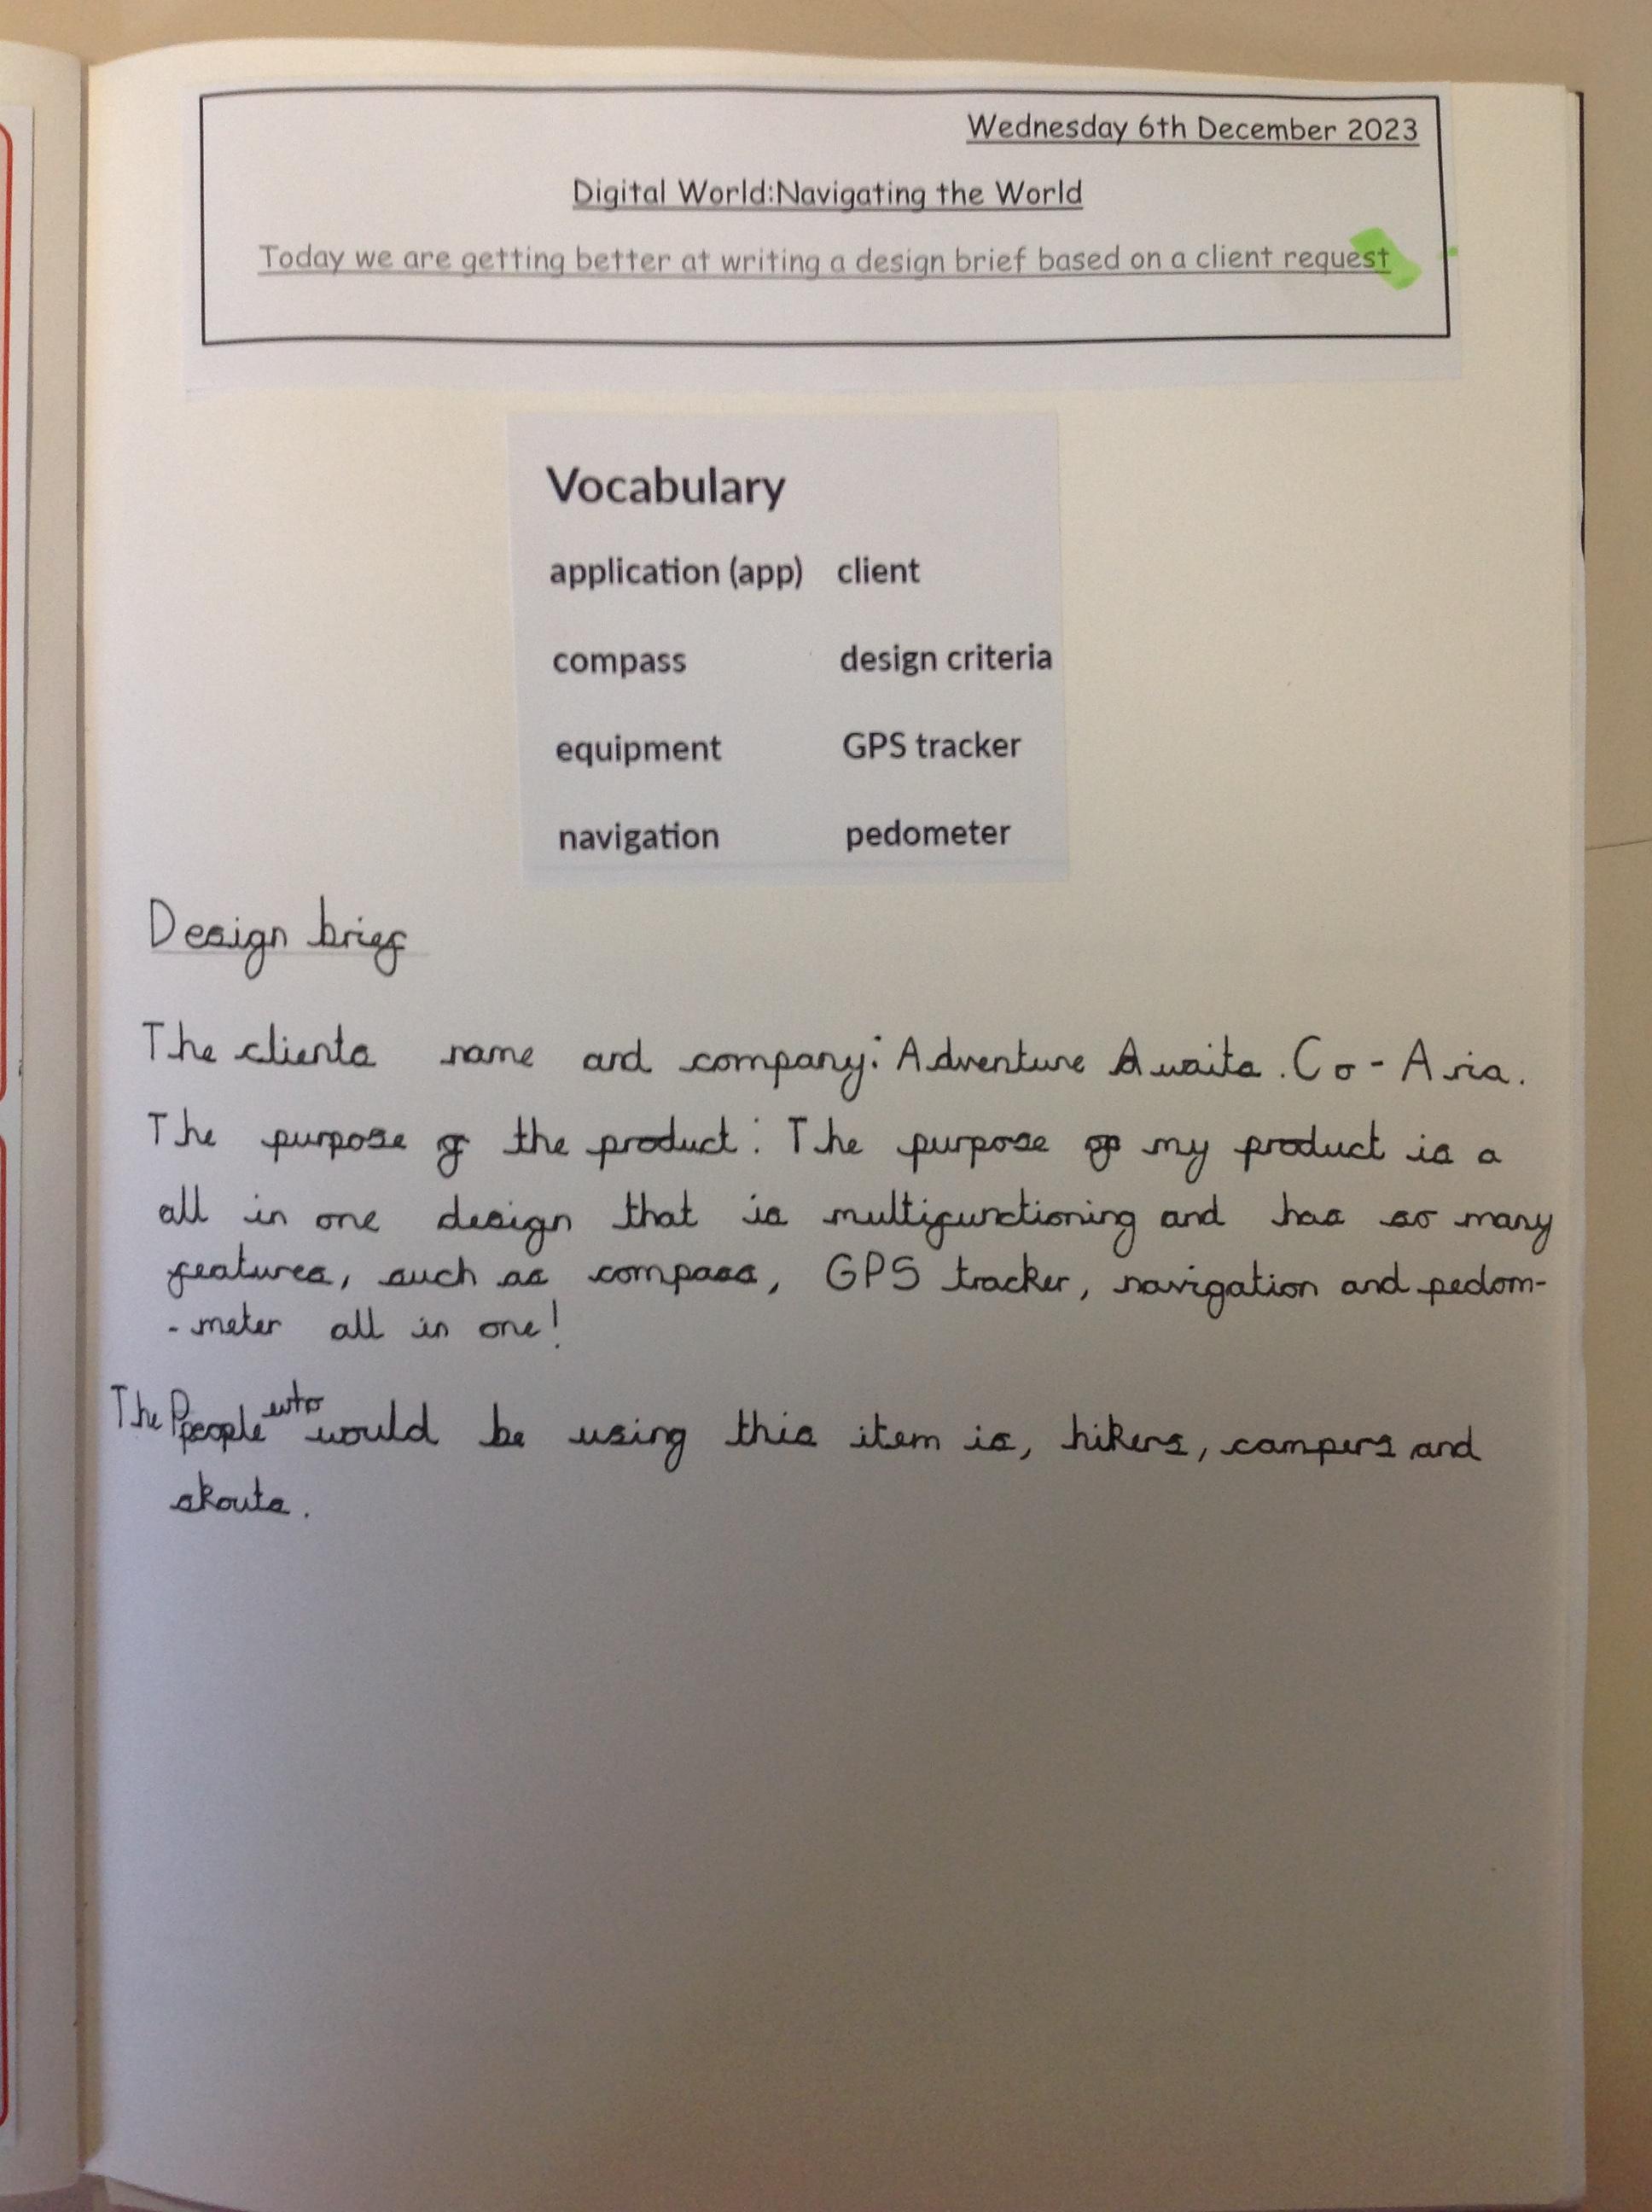 Wednesday 6th December 2023
Digital World:Navigating the World
Today we are getting better at writing a design brief based on a client request
Vocabulary
application (app) client
compass design criteria
equipment GPS tracker
navigation pedometer
Design brief
The clients name and company: Adventure Awaits. Co - Aria.
The purpose of the product: The purpose of my product is a
all in one design that is multifunctioning and has so many
features, such as compass, GPS tracker, navigation and pedom-
- meter all in one!
The People who would be using this item is, hikers, campers and
skouts.